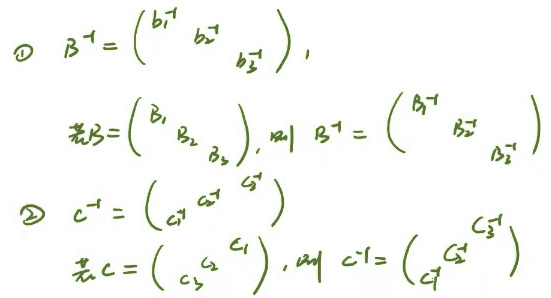 ① B⁻¹ = ( b₁⁻¹ b₂⁻¹ b₃⁻¹ ) ,
若B = ( B₁ B₂ B₃ ) , 则 B⁻¹ = ( B₁⁻¹ B₂⁻¹ B₃⁻¹ )
② C⁻¹ = ( C₁⁻¹ C₂⁻¹ C₃⁻¹ )
若C = ( C₃ C₂ C₁ ) , 则 C⁻¹ = ( C₁⁻¹ C₂⁻¹ C₃⁻¹ )